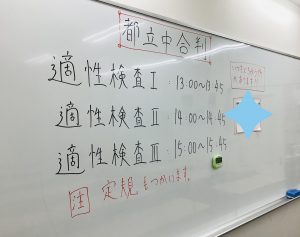 都立中合判
適性検査Ⅰ:13:00～13:45
適性検査Ⅱ:14:00～14:45
適性検査Ⅲ:15:00～15:45
注 定規もつかいます。